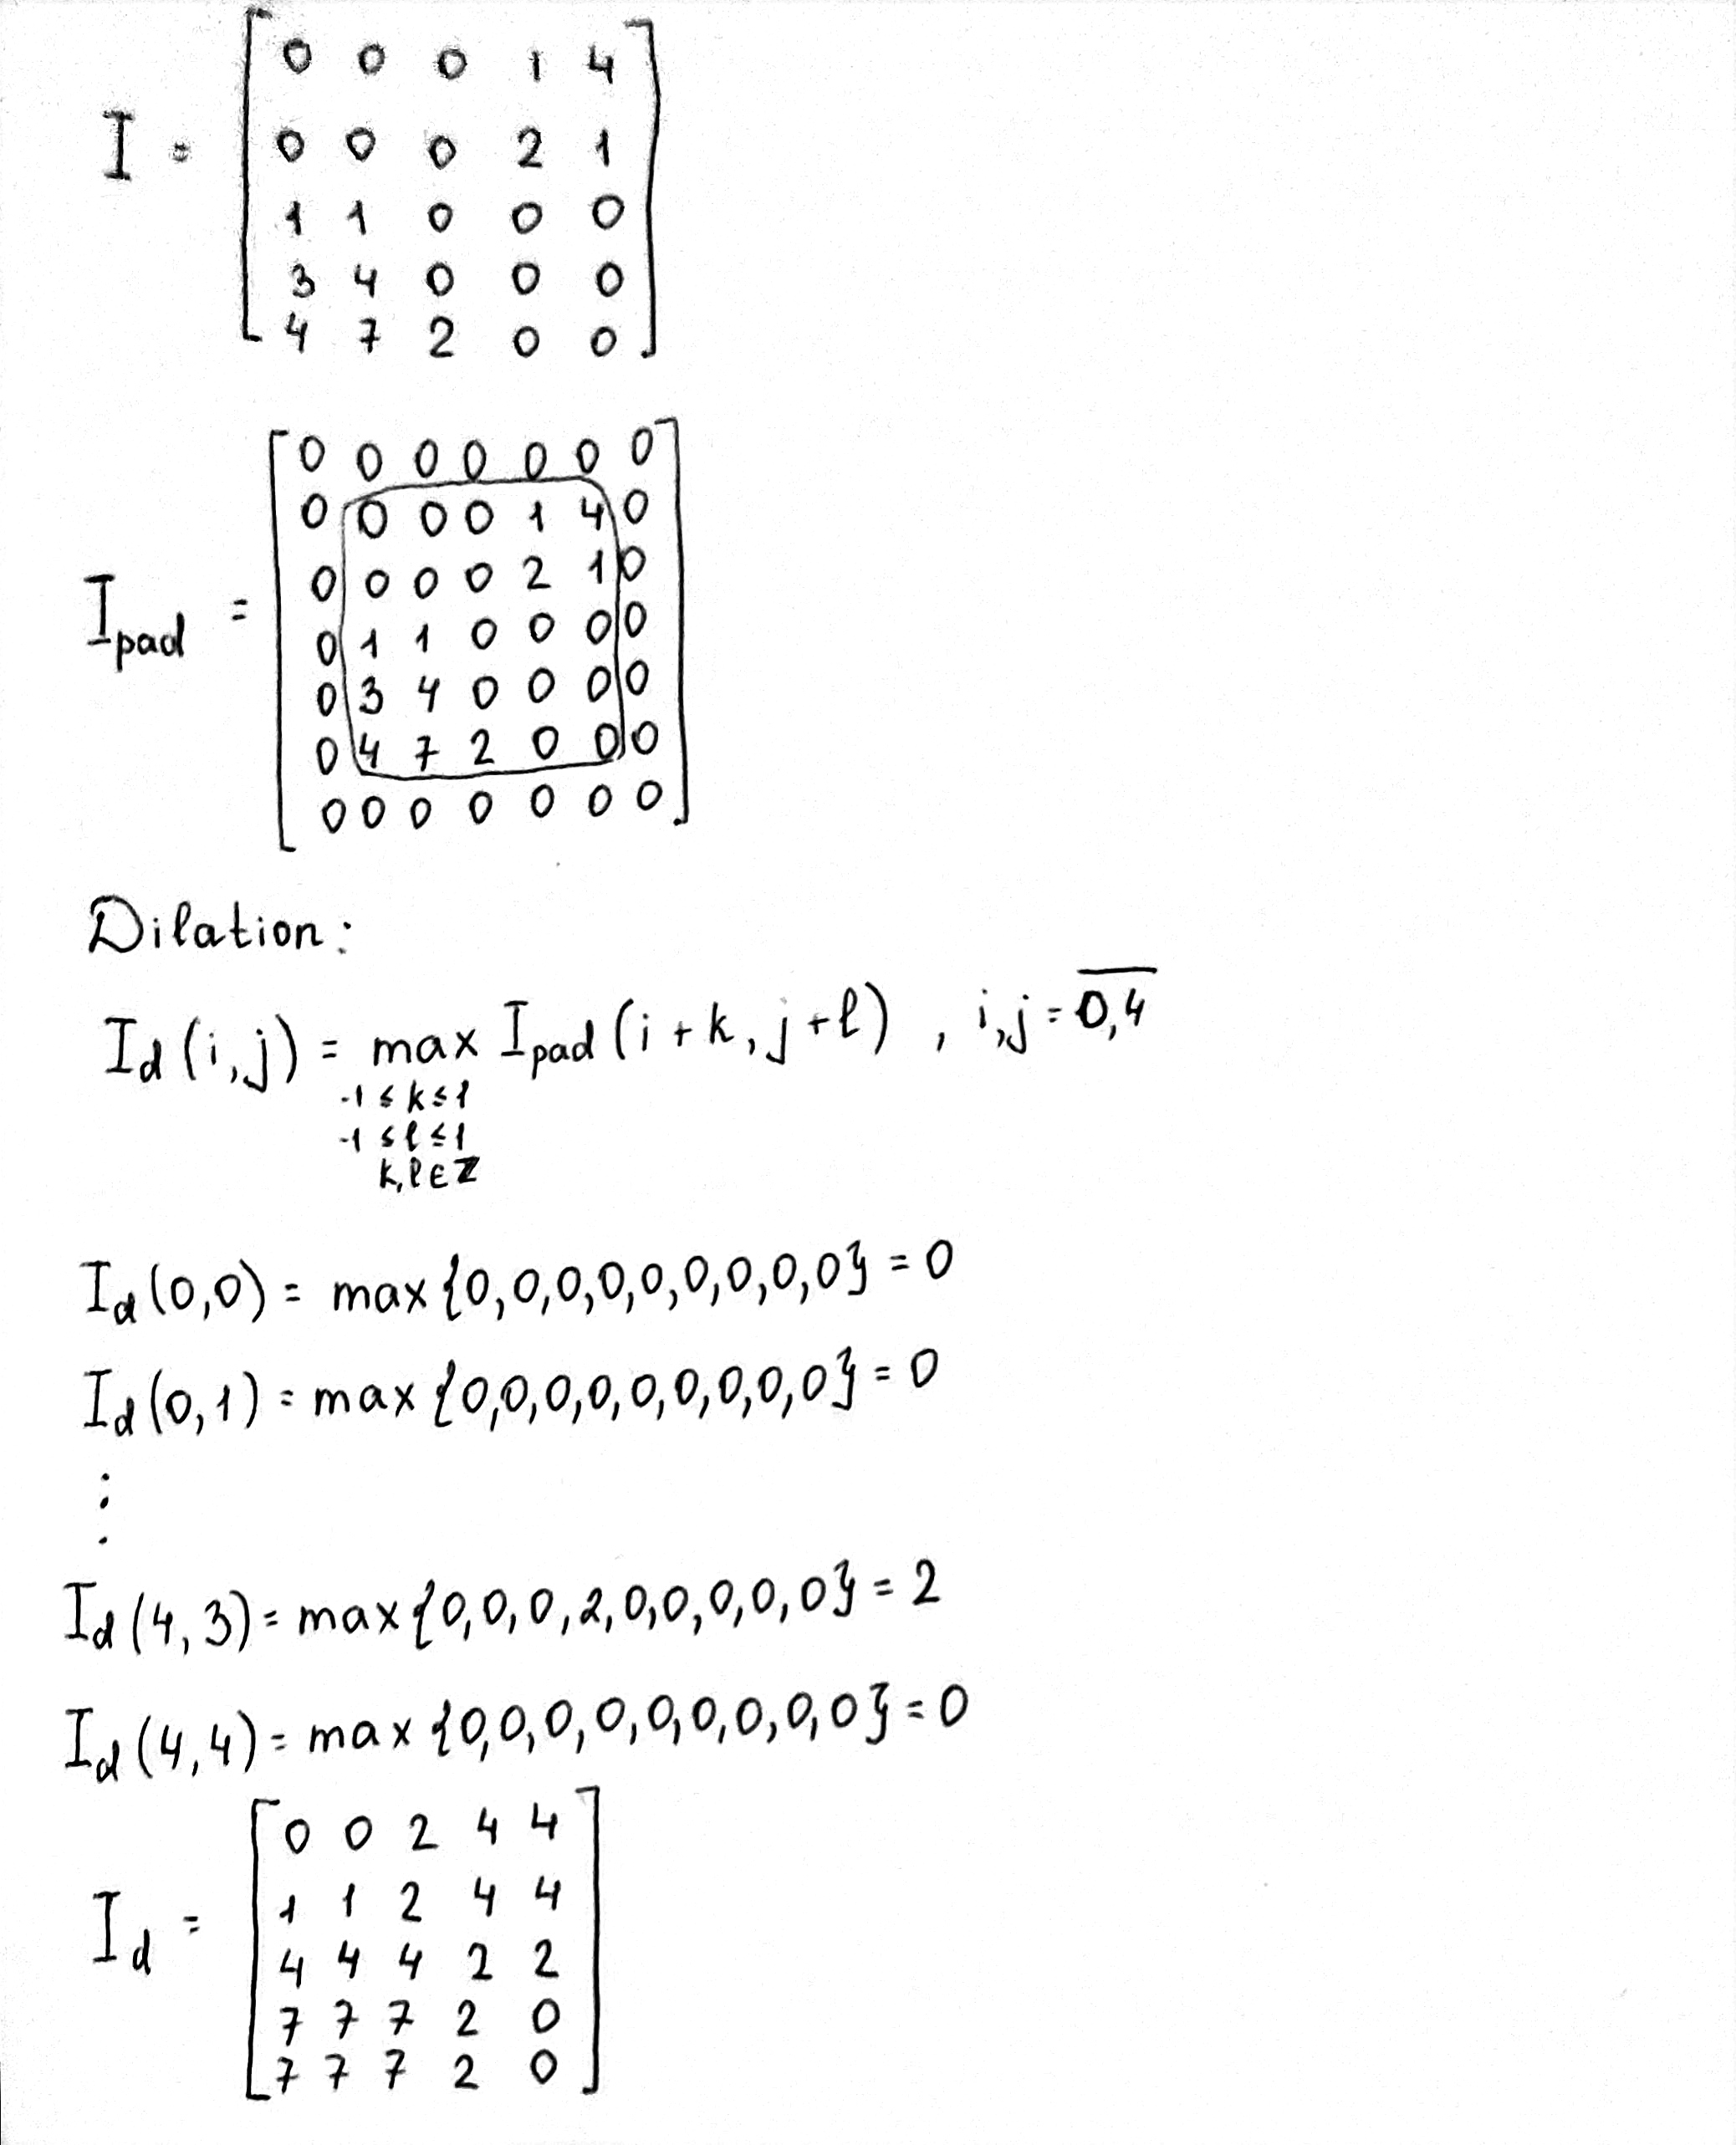 I = [ 0 0 0 1 4
0 0 0 2 1
1 1 0 0 0
3 4 0 0 0
4 7 2 0 0 ]
I_pad = [ 0 0 0 0 0 0 0
0 0 0 0 1 4 0
0 0 0 0 2 1 0
0 1 1 0 0 0 0
0 3 4 0 0 0 0
0 4 7 2 0 0 0
0 0 0 0 0 0 0 ]
Dilation:
I_d (i,j) = max I_pad (i + k, j + l) , i,j = \overline{0,4}
-1 ≤ k ≤ 1
-1 ≤ l ≤ 1
k, l ∈ Z
I_d (0,0) = max {0,0,0,0,0,0,0,0,0} = 0
I_d (0,1) = max {0,0,0,0,0,0,0,0,0} = 0
⋮
I_d (4,3) = max {0,0,0,2,0,0,0,0,0} = 2
I_d (4,4) = max {0,0,0,0,0,0,0,0,0} = 0
I_d = [ 0 0 2 4 4
1 1 2 4 4
4 4 4 2 2
7 7 7 2 0
7 7 7 2 0 ]